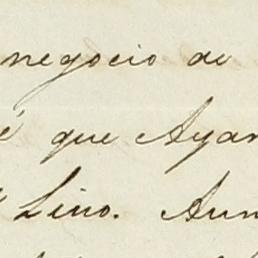 negocio de
é que Ayar
Lino. Aun